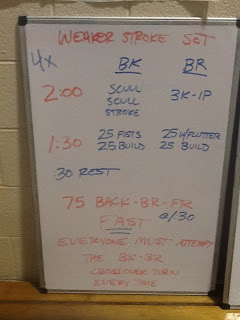 WEAKER STROKE SET
4x BK BR
2:00 SCULL 3K-1P
SCULL
STROKE
1:30 25 FISTS 25 W/FLUTTER
25 BUILD 25 BUILD
:30 REST
75 BACK-BR-FR
FAST @/30
EVERYONE MUST ATTEMPT
THE BK-BR
CROSSOVER TURN
EVERY TIME